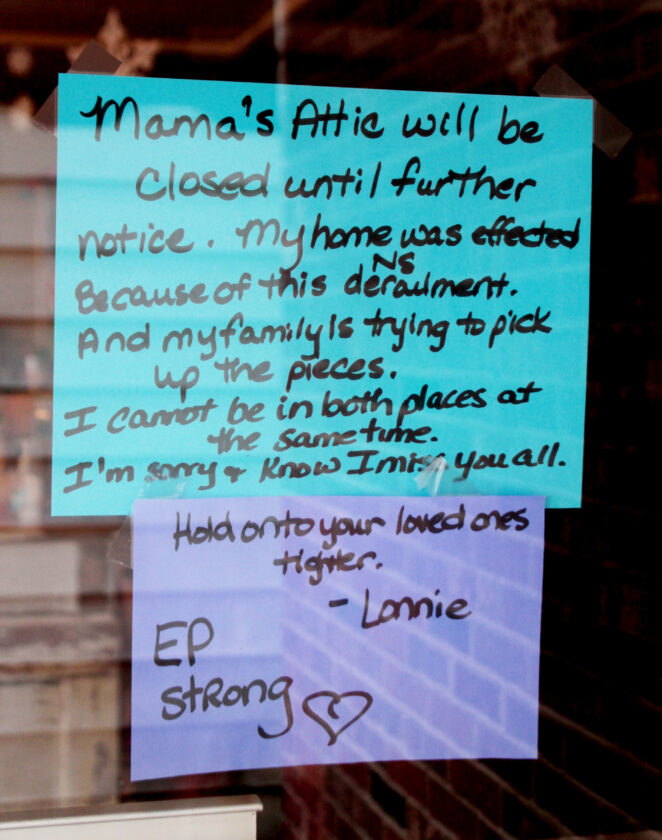 Mama's Attic will be
closed until further
notice. My home was effected
Because of this NS derailment.
And my family is trying to pick
up the pieces.
I cannot be in both places at
the same time.
I'm sorry & know I miss you all.
Hold onto your loved ones
tighter.
- Lonnie
EP
Strong